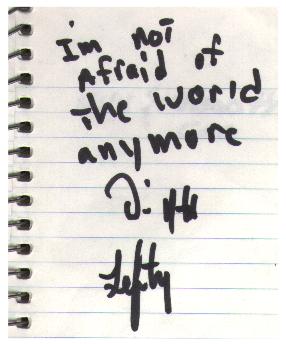 I'm not
Afraid of
the world
anymore
Lefty